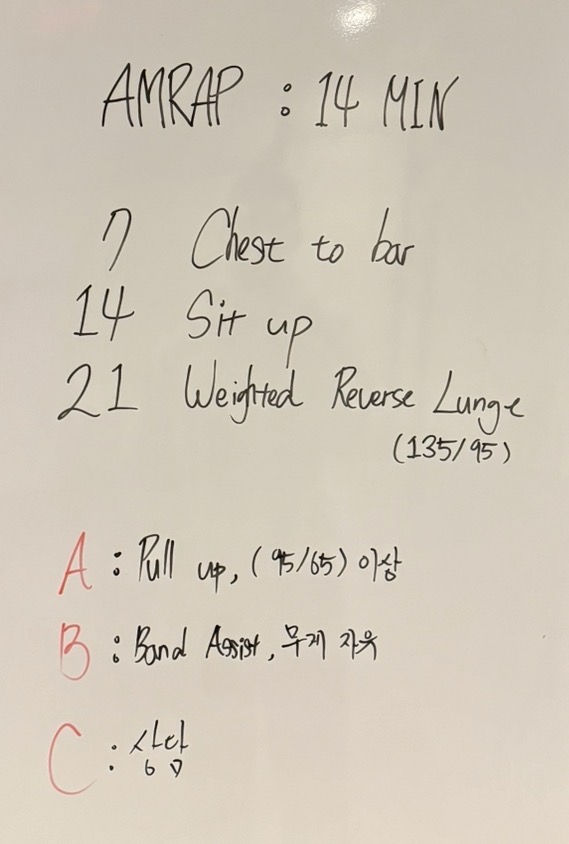 AMRAP : 14 MIN
7 Chest to bar
14 Sit up
21 Weighted Reverse Lunge
(135/95)
A : Pull up, (95/65) 이상
B : Band Assist, 무게 자유
C : 상담